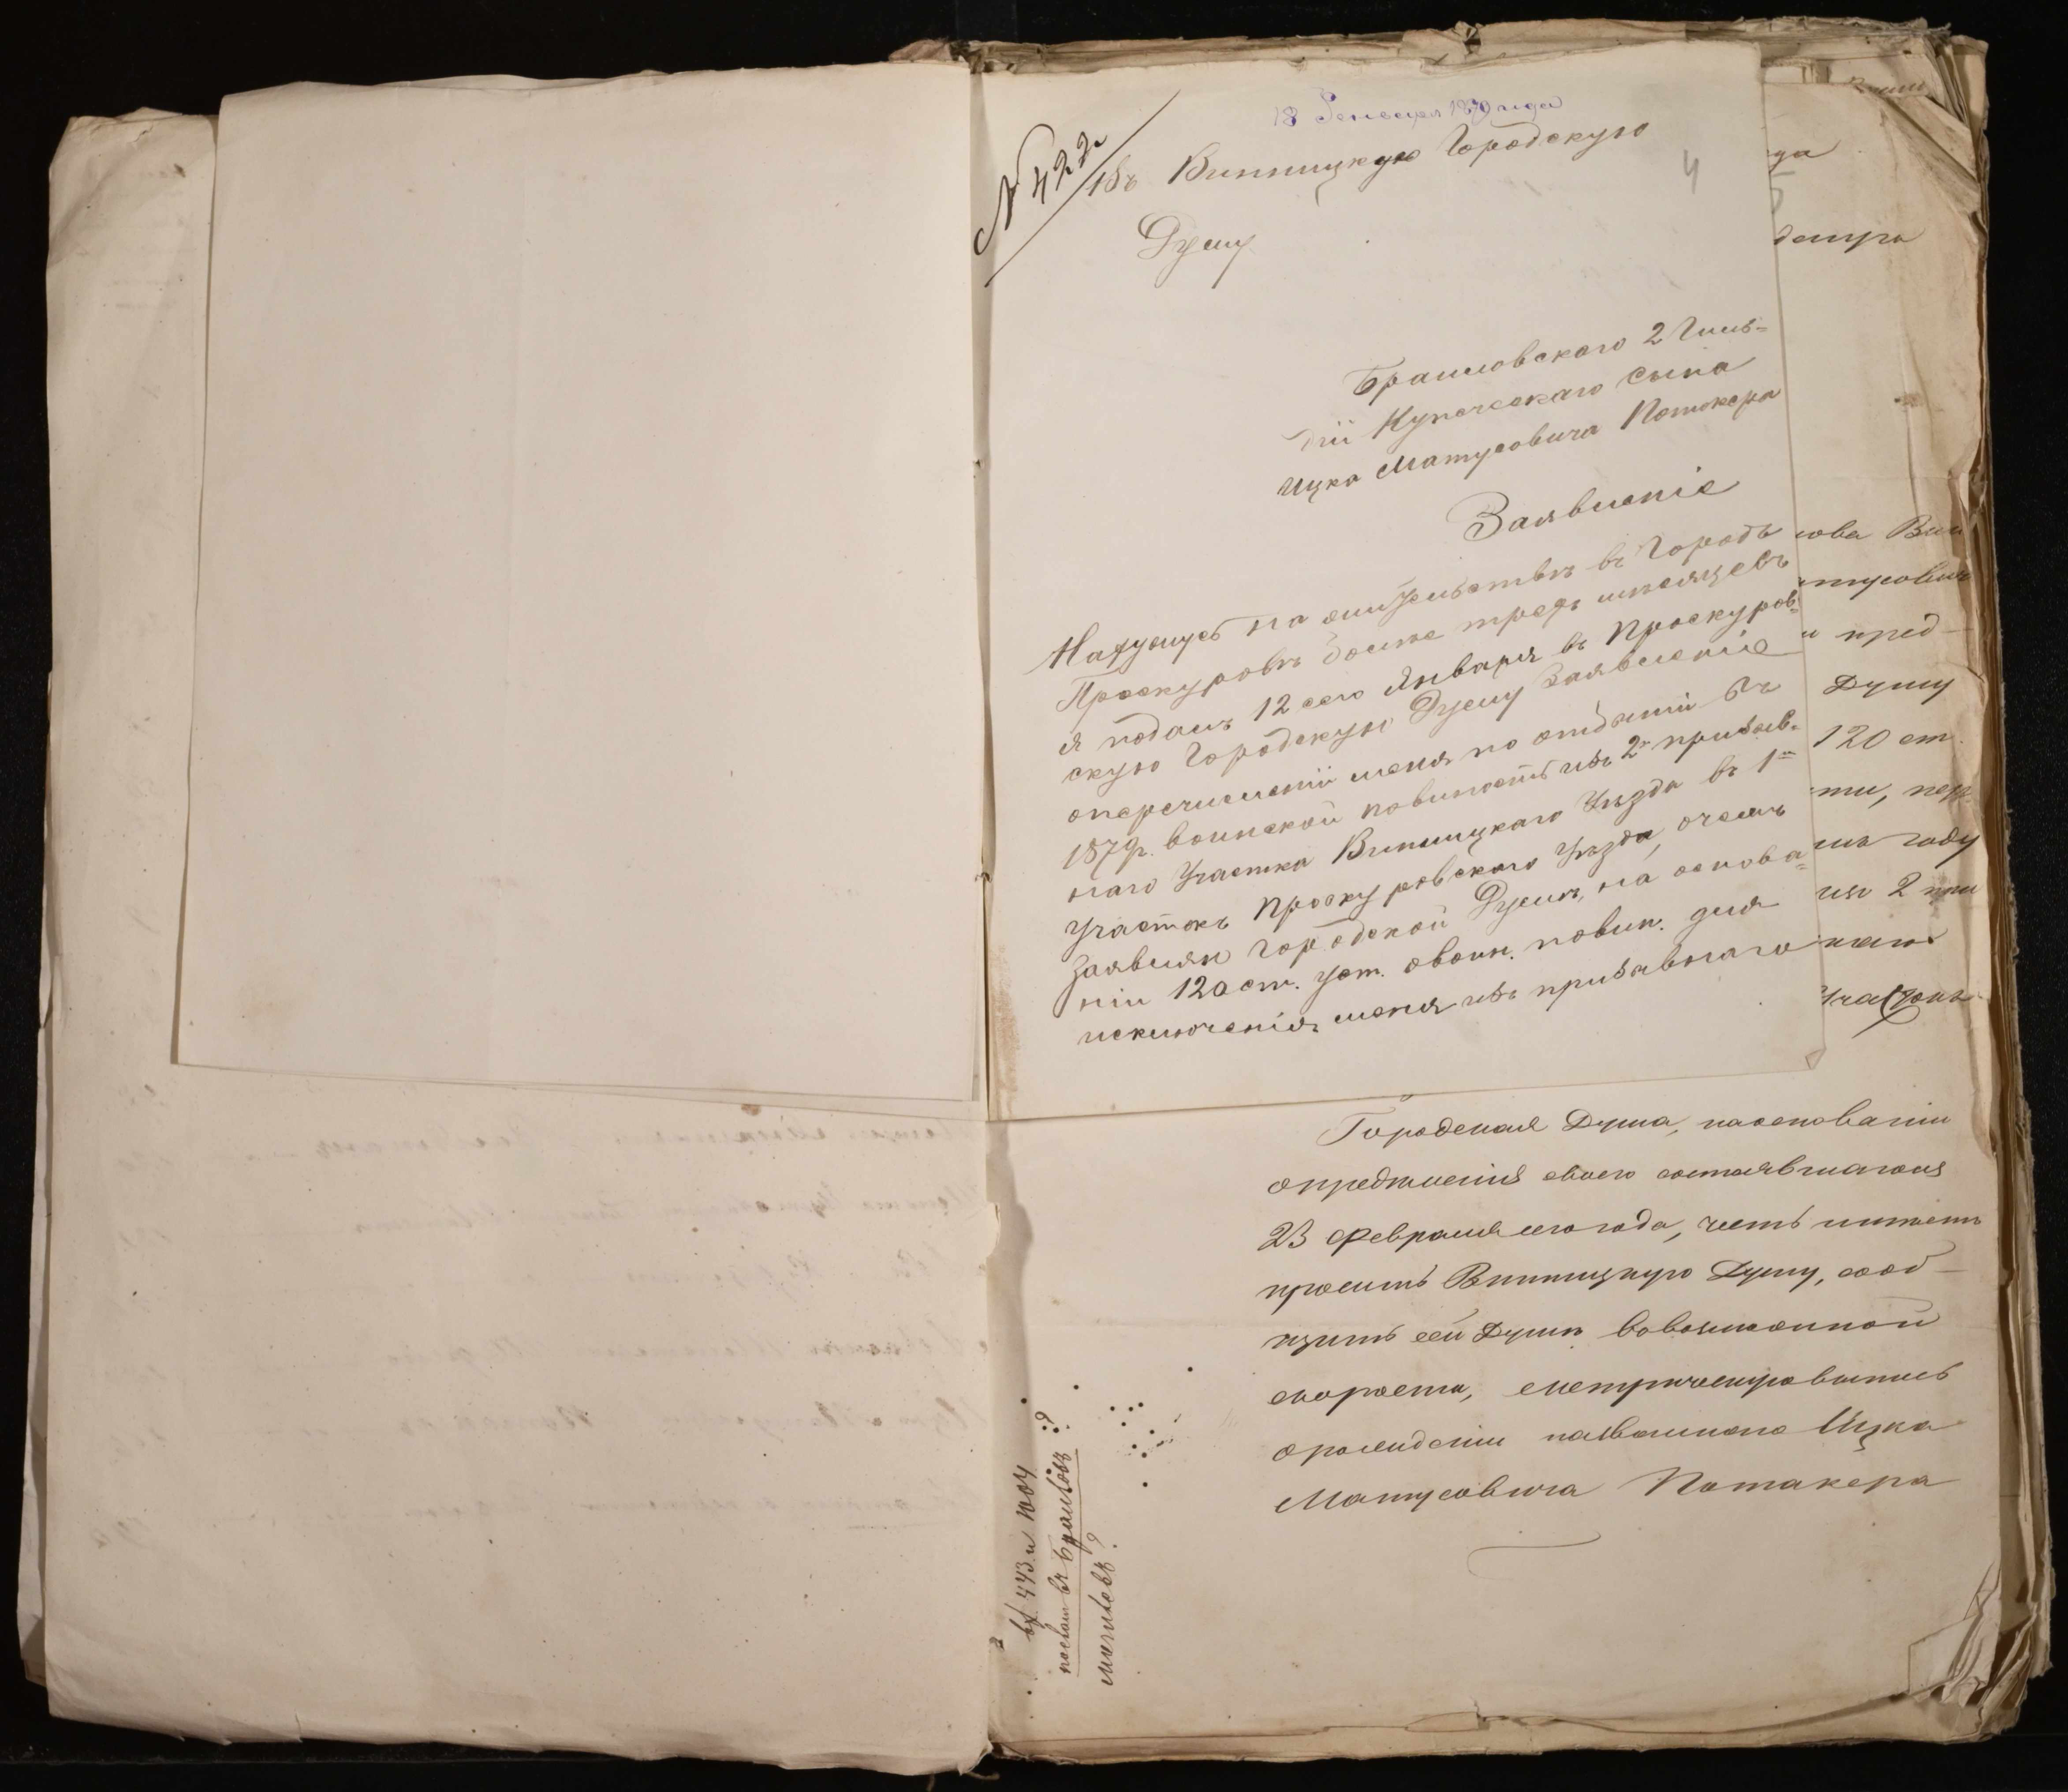 18 Генваря 1879 года
№ 422
Въ Винницкую Городскую
4
Думу
Браиловского 2 Гиль=
діи Купеческаго сына
Ицка Матусовича Потокера
Заявленіе
Находясь на жительствѣ въ Городѣ
Проскуровѣ более трехъ мѣсяцевъ
я подалъ 12 сего Января въ Проскуров=
скую Городскую Думу Заявленіе
о перечисленіи меня по отбытии въ
187 г. воинской повиности изъ 2го призыв=
наго Участка Винницкаго Уѣзда въ 1й
участокъ Проскуровского Уѣзда, о чемъ
заявляя городской Думѣ, на основа=
ніи 120 ст. уст. о воин. повин. для
исключенія меня изъ призывнаго
да
нова Вин
атусовича
и пред-
Думу
120 ст.
ти, пер
мъ году
2 при
Участокъ
Городская Дума, на основаніи
опредѣленія своего состоявшагося
23 Февраля сего года, честь имѣетъ
просить Винницкую Думу, сооб-
щить сей Думѣ въ возможной
скорости, метрическую выпись
о рожденіи названнаго Ицка
Матусовича Потакера
вх 443 и 1004
послан въ Браиловъ